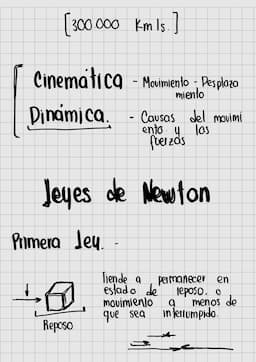 [300.000 Km/s.]
Cinemática - Movimiento - Desplaza
miento
Dinámica. - Causas del movimi
ento y las
fuerzas
Leyes de Newton
Primera Ley. -
Tiende a permanecer en
estado de reposo. o
movimiento a menos de
que sea interrumpido.
Reposo